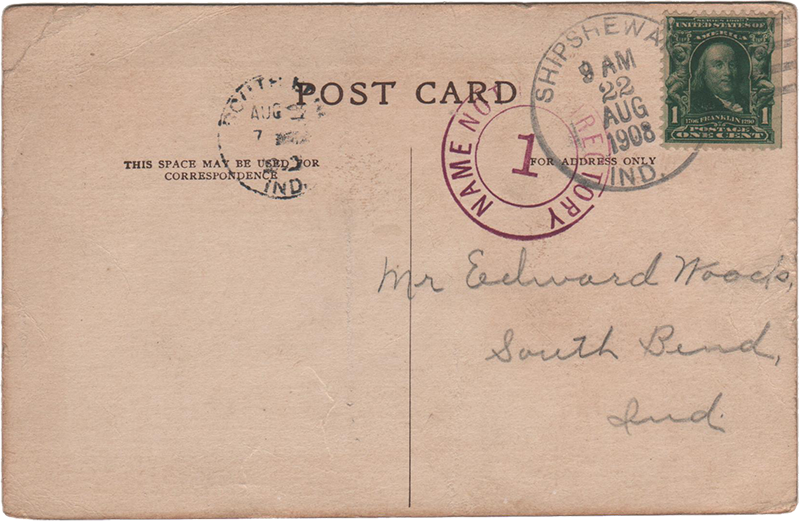 POST CARD
THIS SPACE MAY BE USED FOR
CORRESPONDENCE
FOR ADDRESS ONLY
SOUTH
AUG
7
IND.
NAME NOT
DIRECTORY
1
SHIPSHEWA
9 AM
22
AUG
1908
IND.
SERIES 1902
UNITED STATES OF
AMERICA
1 1
1706 FRANKLIN 1790
POSTAGE
ONE CENT
Mr Edward Woods,
South Bend,
Ind.